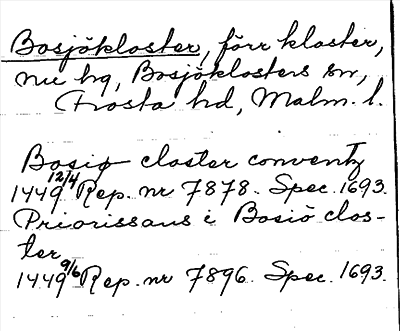 Bosjökloster, förr kloster,
nu hg, Bosjöklosters sn,
Frosta hd, Malm. l.
Bosiø closter conventz
1449 12/4 Rep. nr 7878. Spec. 1693.
Priorissans i Bosiö clos-
ter
1449 9/6 Rep. nr 7896. Spec. 1693.